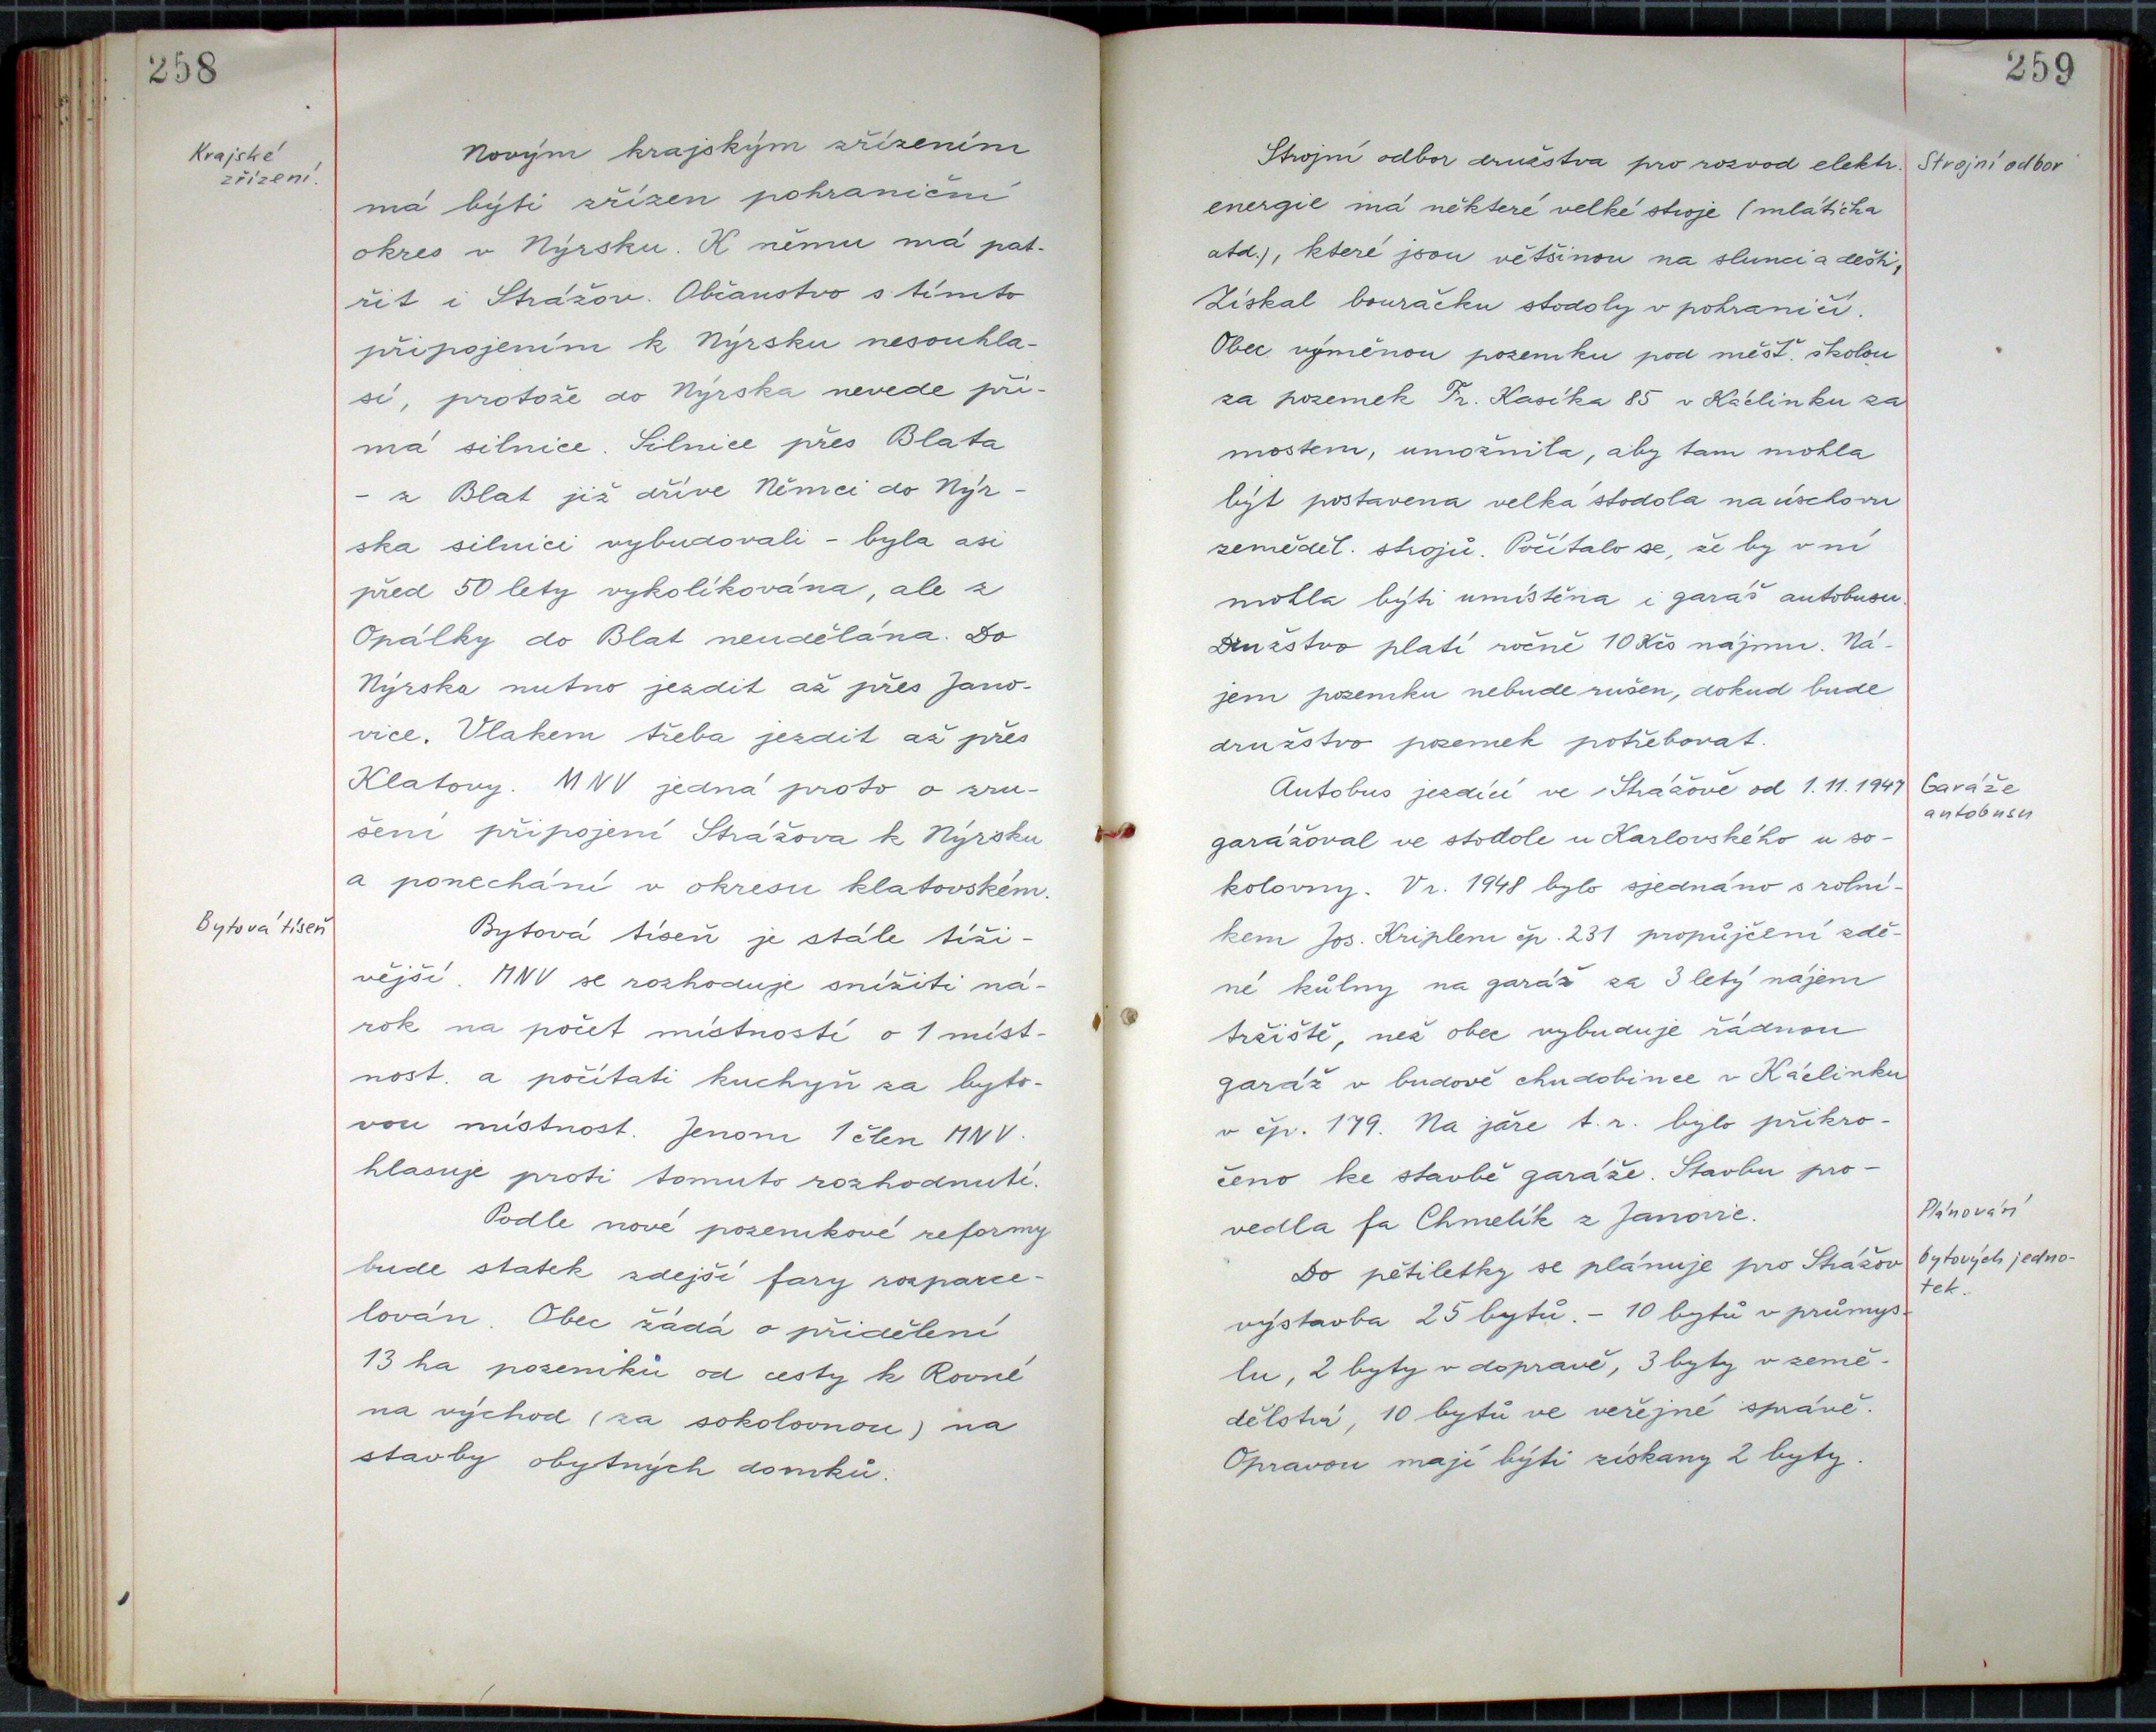 258
Krajské
zřízení.
Novým krajským zřízením
má býti zřízen pohraniční
okres v Nýrsku. K němu má pat-
řit i Strážov. Občanstvo s tímto
připojením k Nýrsku nesouhla-
sí, protože do Nýrska nevede pří-
má silnice. Silnice přes Blata
- z Blat již dříve Němci do Nýr-
ska silnici vybudovali - byla asi
před 50 lety vykolíkována, ale z
Opálky do Blat neudělána. Do
Nýrska nutno jezdit až přes Jano-
vice. Vlakem třeba jezdit až přes
Klatovy. MNV jedná proto o zru-
šení připojení Strážova k Nýrsku
a ponechání v okresu klatovském.
Bytová tíseň
Bytová tíseň je stále tíži-
vější. MNV se rozhoduje snížiti ná-
rok na počet místností o 1 míst-
nost. a počítati kuchyň za byto-
vou místnost. Jenom 1 člen MNV.
hlasuje proti tomuto rozhodnutí.
Podle nové pozemkové reformy
bude statek zdejší fary rozparce-
lován. Obec žádá o přidělení
13 ha pozemků od cesty k Rovné
na východ (za sokolovnou) na
stavby obytných domků.
259
Strojní odbor družstva pro rozvod elektr.
Strojní odbor
energie má některé velké stroje (mlátička
atd.), které jsou většinou na slunci a dešti,
Získal bouračku stodoly v pohraničí.
Obec výměnou pozemku pod měšť. školou
za pozemek Fr. Kasíka 85 v Káčlinku za
mostem, umožnila, aby tam mohla
být postavena velká stodola na úschovu
zeměděl. strojů. Počítalo se, že by v ní
mohla býti umístěna i garáž autobusu.
Družstvo platí ročně 10 Kčs nájmu. Ná-
jem pozemku nebude rušen, dokud bude
družstvo pozemek potřebovat.
Autobus jezdící ve Strážově od 1.11.1947
Garáže
autobusu
garážoval ve stodole u Karlovského u so-
kolovny. V r. 1948 bylo sjednáno s rolní-
kem Jos. Kriplem čp. 231 propůjčení zdě-
né kůlny na garáž za 3 letý nájem
tržiště, než obec vybuduje řádnou
garáž v budově chudobince v Káčlinku
v čp. 179. Na jaře t. r. bylo přikro-
čeno ke stavbě garáže. Stavbu pro-
vedla fa Chmelík z Janovic.
Plánování
bytových jedno-
tek.
Do pětiletky se plánuje pro Strážov
výstavba 25 bytů. - 10 bytů v průmys-
lu, 2 byty v dopravě, 3 byty v země-
dělství, 10 bytů ve veřejné správě.
Opravou mají býti získany 2 byty.